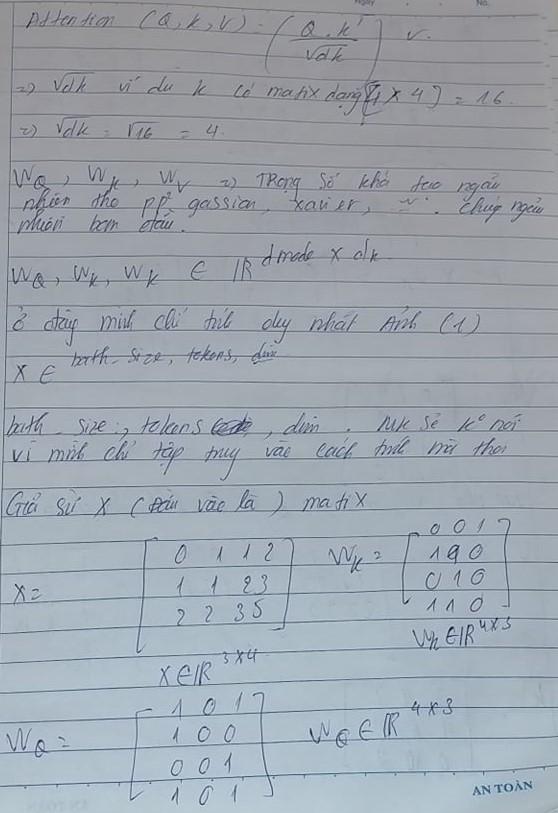 Attention (Q, K, V) = (Q . K^T / √dk) V.
=> √dk ví dụ K có matix dạng [4 x 4] = 16.
=> √dk = √16 = 4.
WQ, WK, WV => Trọng số khởi tạo ngẫu
nhiên theo pp² gassian, xavier, ... chúng ngẫu
nhiên ban đầu.
WQ, WK, WK ∈ IR^dmode x dk
Ở đây mình chỉ tính duy nhất Ảnh (1)
X ∈ bath_size, tokens, dim
bath_size, tokens, dim. MK sẽ k° nói
vì mình chỉ tập truy vào cách tính mà thôi
Giả sử X (Đầu vào là) matix
X = [0 1 1 2
1 1 2 3
2 2 3 5]
X ∈ IR^3x4
WK = [0 0 1
1 0 0
0 1 0
1 1 0]
WK ∈ IR^4x3
WQ = [1 0 1
1 0 0
0 0 1
1 0 1]
WQ ∈ IR^4x3
AN TOÀN